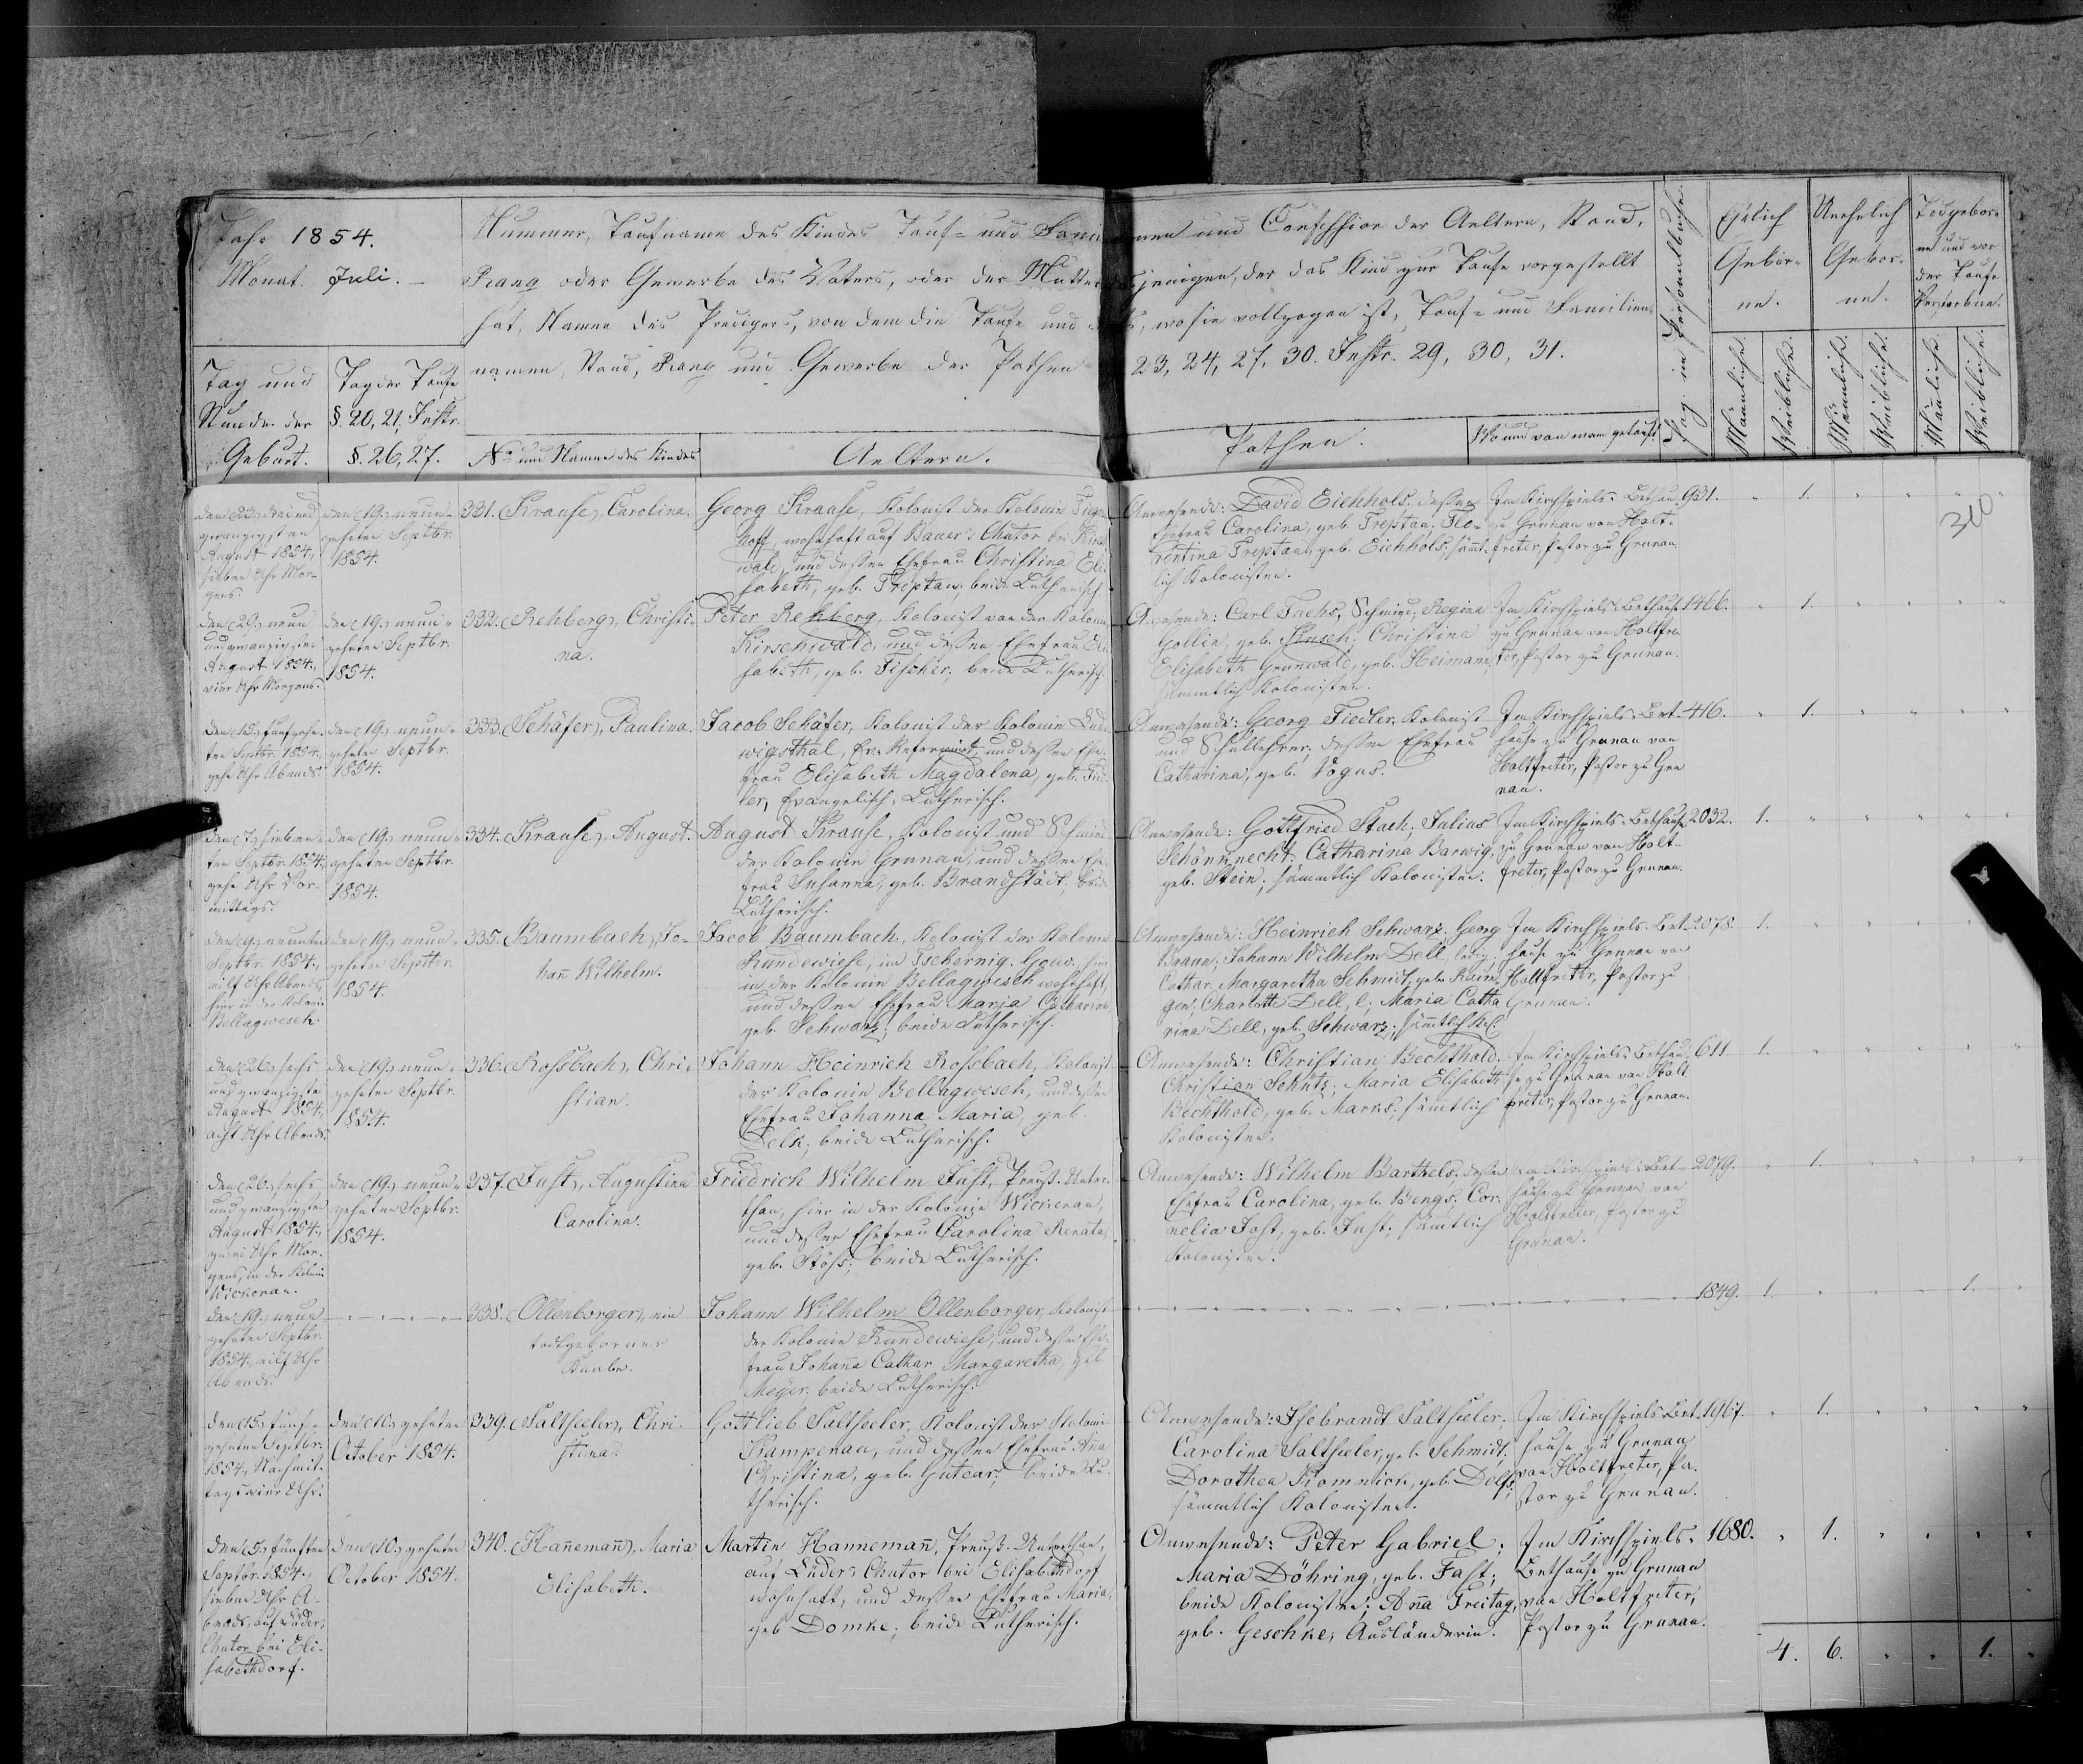 Jahr 1854.
Monat. Juli. –
Nummer, Taufname des Kindes Tauf- und Fami
Rang oder Gewerbe des Vaters, oder der Mutter
hat, Namen des Predigers, von dem die Taufe und
namen, Stand, Rang und Gewerbe der Pathen
Tag und
Stunde der
Geburt.
Tag der Taufe
§. 20, 21, Instr.
§. 26, 27.
No und Namen des Kindes
Aeltern.
nen und Confession der Aeltern, Stand,
desjenigen, der das Kind zur Taufe vorgestellt
wo sie vollzogen ist, Tauf- und Familien
23, 24, 27, 30. Instr. 29, 30, 31.
Pathen.
Wo und von wem getauft
Pag. im Personalbuche.
Ehelich
Gebor-
ne.
Unehelich
Gebor-
ne.
Todgebor-
ne und vor
der Taufe
Verstorbene.
Männliche.
Weibliche.
Männliche.
Weibliche.
Männliche.
Weibliche.
310
den (23.) drei und
zwanzigsten
August 1854.,
sieben Uhr Mor-
gens.
den (19.) neun-
zehnten Septbr.
1854.
331. (Krause), Carolina.
Georg Krause, Kolonist der Kolonie Tiegen
hoff, wohnhaft auf Bauer's Chutor bei Kirsch
wald, und dessen Ehefrau Christina Eli-
sabeth, geb. Treptau; beide Lutherisch.
Anwesende: David Eichholz, dessen
Ehefrau Carolina, geb. Treptau; Flo-
rentina Treptau, geb. Eichholz; sämt-
lich Kolonisten.
Im Kirchspiels-Bethau
zu Grunau von Holt-
freter, Pastor zu Grunau.
931.
" 1. " " " "
den (29.) neun
und zwanzigsten
August 1854.,
vier Uhr Morgens.
den (19.) neun-
zehnten Septbr.
1854.
332. (Rehberg), Christi-
na.
Peter Rehberg, Kolonist von der Kolonie
Kirschwald, und dessen Ehefrau Eli-
sabeth, geb. Fischer; beide Lutherisch.
Anwesende: Carl Fuchs, Schmied; Regina
Gollin, geb. Kusch; Christina
Elisabeth Grunwald, geb. Heimann;
sämmtlich Kolonisten.
Im Kirchspiels-Bethause
zu Grunau von Holtfre-
ter, Pastor zu Grunau.
1466.
" 1. " " " "
den (15.) fünfzehn-
ten Septbr. 1854.,
zehn Uhr Abends.
den (19.) neun-
zehnten Septbr.
1854.
333. (Schäfer), Paulina.
Jacob Schäfer, Kolonist der Kolonie Lud-
wigsthal, Ev. Reformirt und dessen Ehe-
frau Elisabeth Magdalena, geb. Fied-
ler, Evangelisch-Lutherisch.
Anwesende: Georg Fiedler, Kolonist
und Schullehrer; dessen Ehefrau
Catharina, geb. Vogus.
Im Kirchspiels-Bet-
hause zu Grunau von
Holtfreter, Pastor zu Gru
nau.
416.
" 1. " " " "
den (7.) sieben-
ten Septbr. 1854.,
zehn Uhr Vor-
mittags.
den (19.) neun-
zehnten Septbr.
1854.
334. (Krause), August.
August Krause, Kolonist und Schmied
der Kolonie Grunau, und dessen Ehe-
frau Susanna, geb. Brandstädt; beide
Lutherisch.
Anwesende: Gottfried Stach; Julius
Schönknecht; Catharina Barwig,
geb. Stein; sämmtlich Kolonisten.
Im Kirchspiels-Bethause
zu Grunau von Holt-
freter, Pastor zu Grunau.
2032.
1. " " " " "
den (9.) neunten
Septbr. 1854.,
eilf Uhr Abends,
hier in der Kolonie
Bellagwesch.
den (19.) neun-
zehnten Septbr.
1854.
335. (Baumbach), Jo-
hañ Wilhelm.
Jacob Baumbach, Kolonist der Kolonie
Rundewiese, im Tschernig. Gouv., hier
in der Kolonie Bellagwesch wohnhaft,
und dessen Ehefrau Maria Catharina,
geb. Schwarz; beide Lutherisch.
Anwesende: Heinrich Schwarz; Georg
Braun; Johann Wilhelm Dell, ledig;
Cathar. Margaretha Schmidt, geb. Raim
ger; Charlotte Dell, l.; Maria Catha
rina Dell, geb. Schwarz; sämtlich Kol.
Im Kirchspiels-Bet-
hause zu Grunau von
Holtfreter, Pastor zu
Grunau.
2078.
1. " " " " "
den (26.) sechs
und zwanzigsten
August 1854.,
acht Uhr Abends.
den (19.) neun-
zehnten Septbr.
1854.
336. (Rossbach), Chri-
stian.
Johann Heinrich Rossbach, Kolonist
der Kolonie Bellagwesch, und dessen
Ehefrau Johanna Maria, geb.
Delk; beide Lutherisch.
Anwesende: Christian Bechthold;
Christian Schütz; Maria Elisabeth
Bechthold, geb. Marks; sämtlich
Kolonisten.
Im Kirchspiels-Bethau-
se zu Grunau von Holt
freter, Pastor zu Grunau.
611
1. " " " " "
den (26.) sechs
und zwanzigsten
August 1854.,
zwei Uhr Mor-
gens, in der Kolonie
Wickerau.
den (19.) neun-
zehnten Septbr.
1854.
337. (Just), Augustina
Carolina.
Friedrich Wilhelm Just, Preuß. Unter-
than, hier in der Kolonie Wickerau,
und dessen Ehefrau Carolina Renata,
geb. Stöhs; beide Lutherisch.
Anwesende: Wilhelm Barthels, dessen
Ehefrau Carolina, geb. Bengs; Cor-
nelia Jost, geb. Just; sämtlich
Kolonisten.
Im Kirchspiels-Bet-
hause zu Grunau von
Holtfreter, Pastor zu
Grunau.
2079.
" 1. " " " "
den (19.) neun-
zehnten Septbr.
1854., eilf Uhr
Abends.
338. (Ollenborger), ein
todtgeborner
Knabe.
Johann Wilhelm Ollenborger, Kolonist
der Kolonie Rundewiese, und dessen Ehe-
frau Johaña Cathar. Margaretha, geb.
Meyer; beide Lutherisch.
1849.
1. " " " 1. "
den (15.) fünf-
zehnten Septbr.
1854., Nachmit-
tags vier Uhr.
den (10.) zehnten
October 1854.
339. (Saltseeler), Chri-
stina.
Gottlieb Saltseeler, Kolonist der Kolonie
Kampenau, und dessen Ehefrau Aña
Christina, geb. Gutear; beide Lu-
therisch.
Anwesende: Isebrandt Saltseeler;
Carolina Saltseeler, geb. Schmidt;
Dorothea Komnick, geb. Delfs;
sämmtlich Kolonisten.
Im Kirchspiels-Bet-
hause zu Grunau
von Holtfreter, Pa-
stor zu Grunau.
1967.
" 1. " " " "
den (5.) fünften
Septbr. 1854.,
sieben Uhr A-
bends, auf Lüders
Chutor bei Eli-
sabethdorf.
den (10.) zehnten
October 1854.
340. (Hañemañ), Maria
Elisabeth.
Martin Hannemañ, Preuß. Unterthan,
auf Lüders Chutor bei Elisabethdorf
wohnhaft, und dessen Ehefrau Maria,
geb. Domke; beide Lutherisch.
Anwesende: Peter Gabriel;
Maria Döhring, geb. Fast;
beide Kolonisten; Aña Freitag,
geb. Geschke, Ausländerin.
Im Kirchspiels-
Bethause zu Grunau
von Holtfreter,
Pastor zu Grunau.
1680.
" 1. " " " "
4. 6. " " 1. "